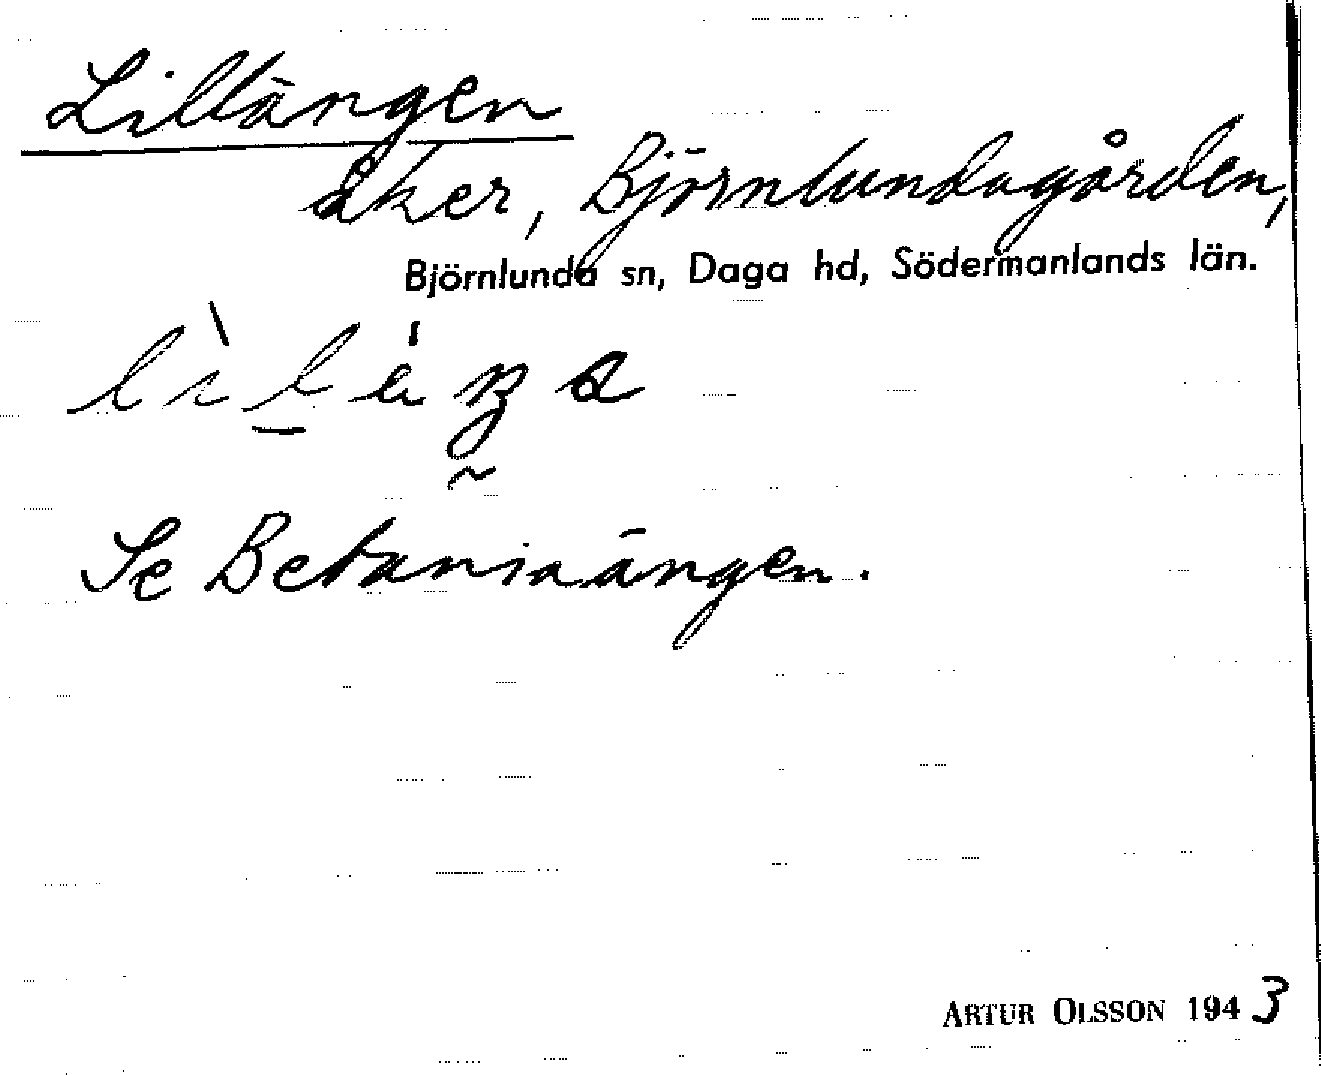 Lillängen
åker, Björnlundagården,
Björnlunda sn, Daga hd, Södermanlands län.
Se Betaniaängen.
ARTUR OLSSON 1943